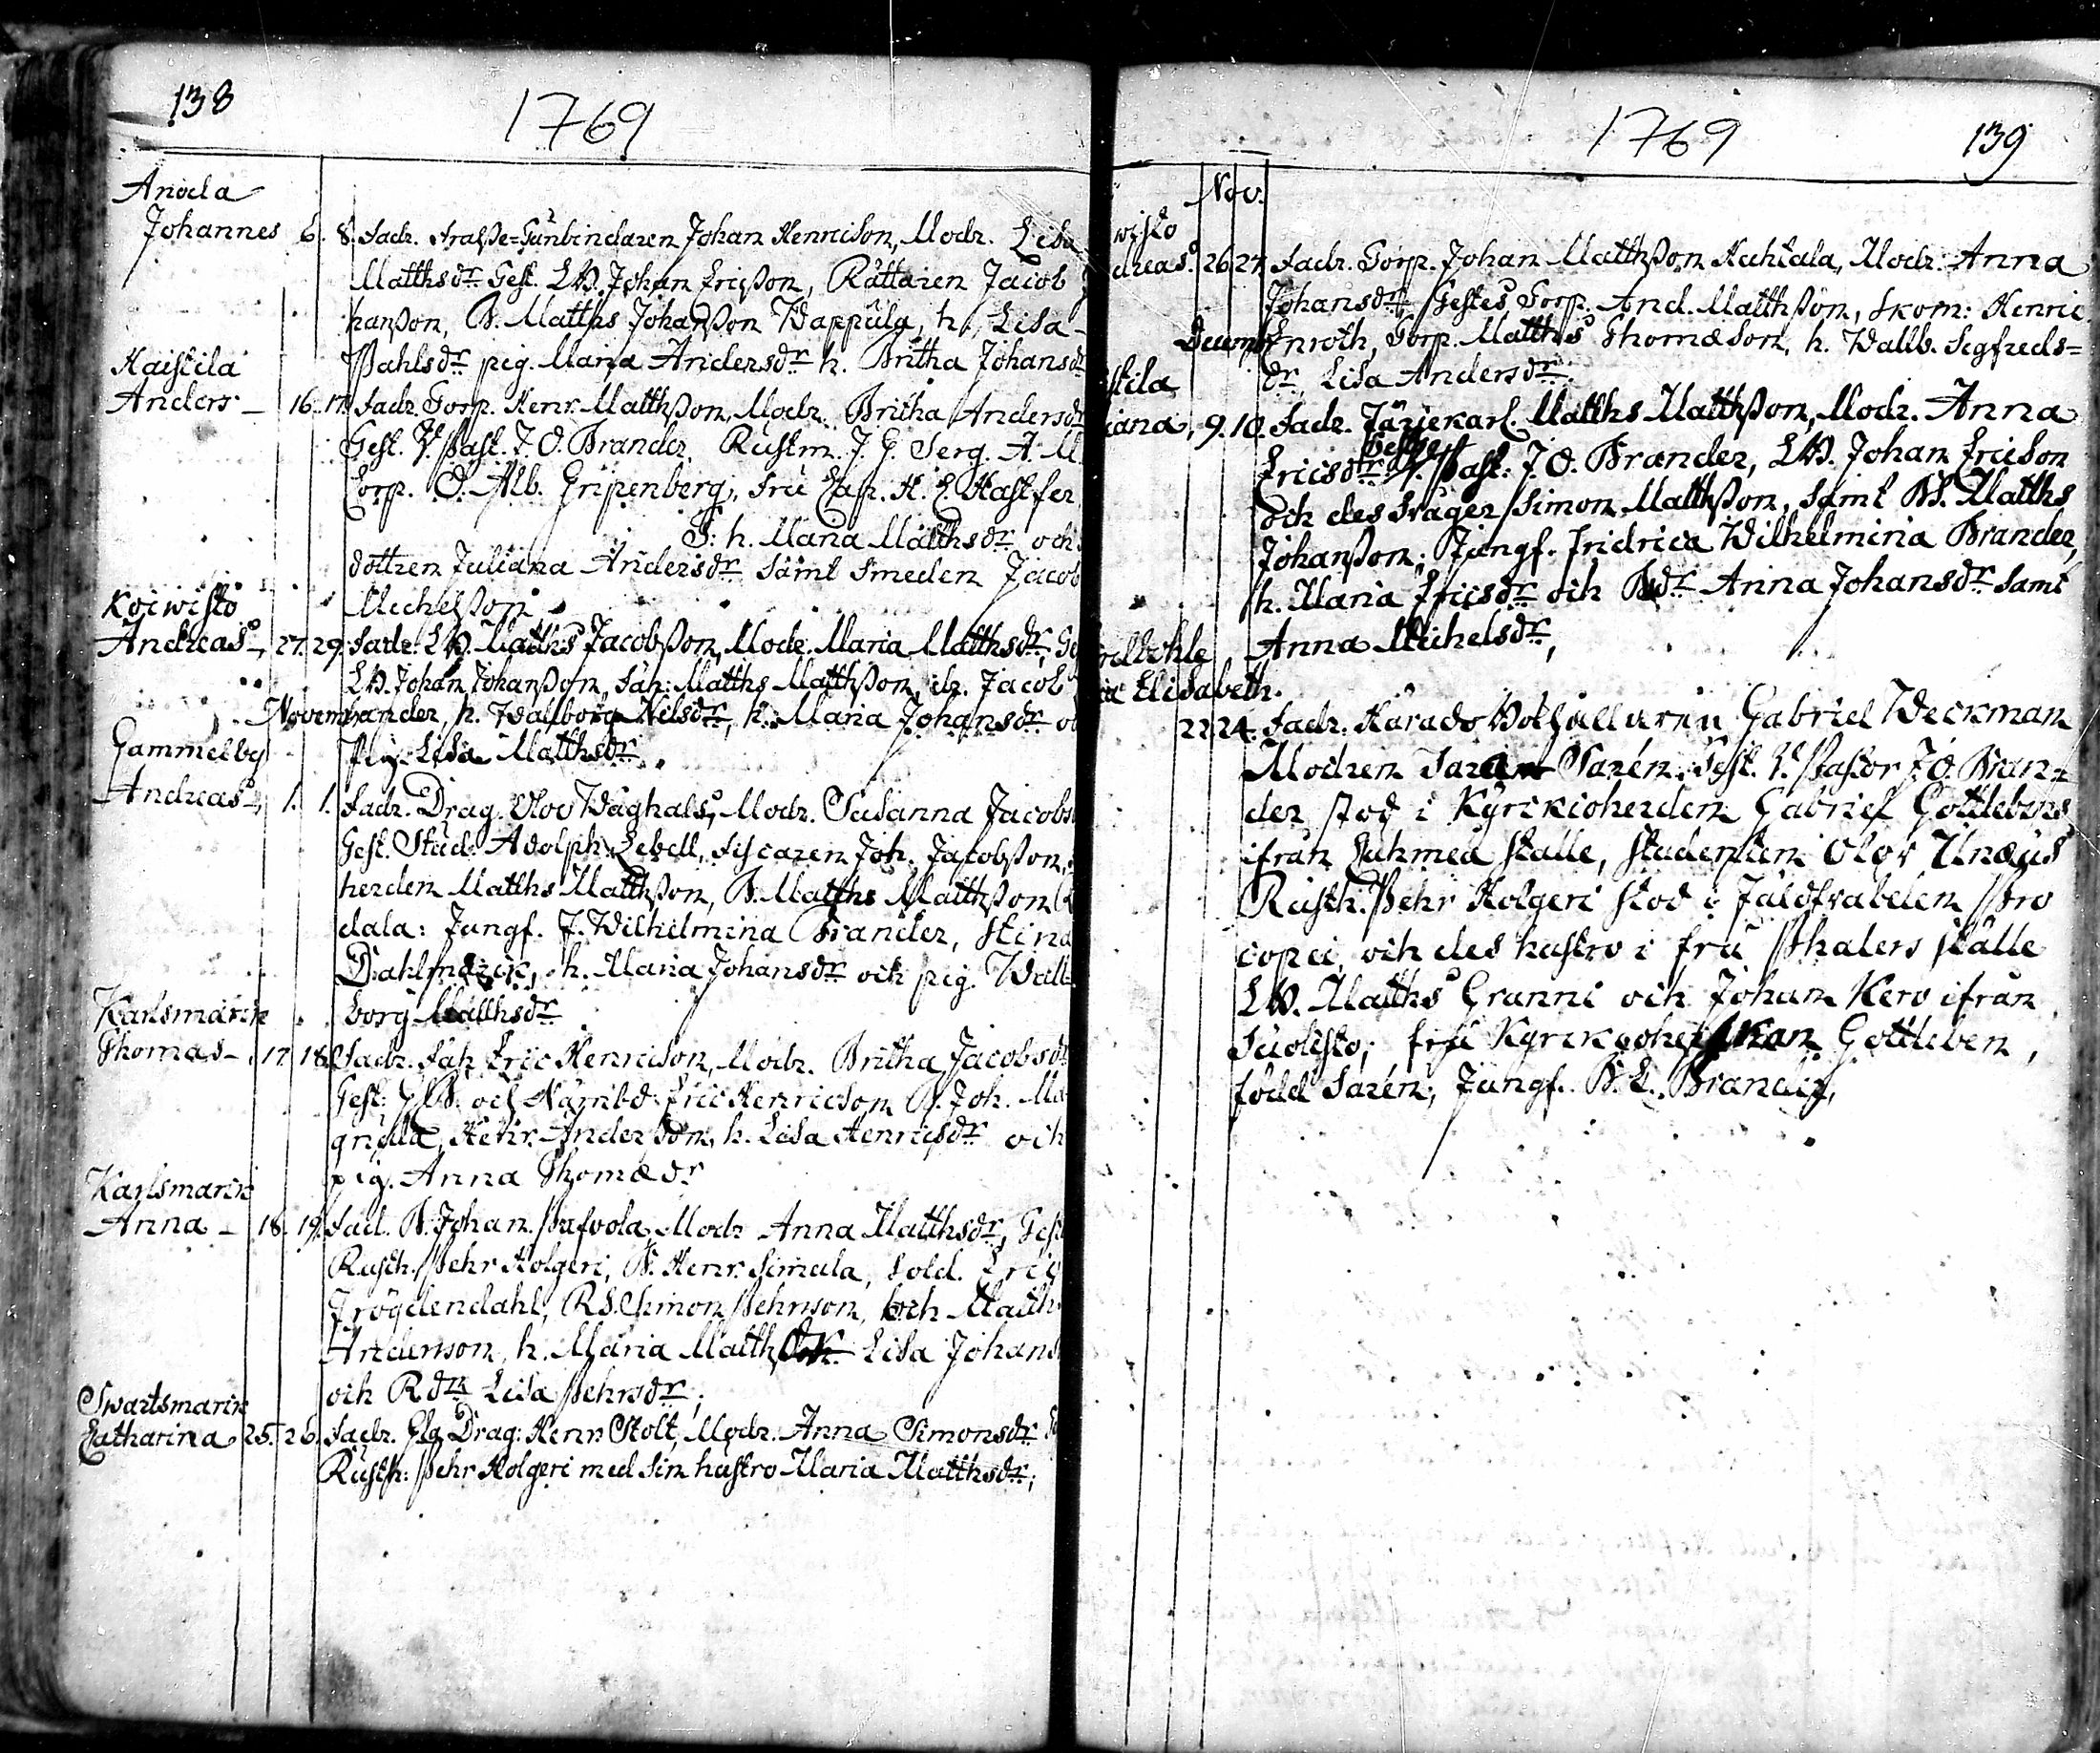 138
1769
Anola
Johannes 6. 8. Fadr. Johan Henricson, Modr. Lisa
Matthsdr Gest. LB. Johan Ericßon, Rättaren Jacob
hanßon, B. Matths Johanßon Wappula, h. Lisa
Haistila Pahlsdr pig. Maria Andersdr h. Britha Johansdr
Anders 16. 17. Fadr. Torp. Henr. Matthßon, Modr. Britha Andersdr
Gest. V. Past. J. O. Brander, Rustm. J. G. Serg. A. M.
Corp. O. Alb. Gripenberg, Fru Cap. H. E. Hastfer
S: h. Maria Matthsdr och
dottren Juliana Andersdr samt Smeden Jacob
Koiwisto Michelßon
Andreas 27. 29. Fadr. LB. Matths Jacobßon, Modr. Maria Matthsdr, Ge
LB. Johan Johanßon, Matths Matthßon, dr. Jacob
November ander, h. Wallborg Nilsdr, h. Maria Johansdr o
Gammelby Pig. Lisa Matthsdr
Andreas 1. 1. Fadr. Drag. Olov Wåghals, Modr. Susanna Jacobs
Gest. Stud. Adolph Lebell, Fiscaren Joh. Jacobßon,
herden Matths Matthßon, B. Matths Matthßon
dala: Jungf. F. Wilhelmina Brander, Stina
Dahlmarck, h. Maria Johansdr och pig. Wall
Karlsmark borg Matthsdr
Thomas 17. 18. Fadr. Eric Henricson, Modr. Britha Jacobsdr
Gest: och Nämbd: Eric Henricson B. Joh. Ma
Henr. Anderßon, h. Lisa Henricsdr och
Karlsmark pig. Anna Thomædr
Anna 18. 19. Fad. B. Johan Pafvola Modr Anna Matthsdr, Gest
Rusth. Pehr Holgeri, B. Henr. Simula, Sold. Eric
Frögdendahl, RS. Simon Pehrson, och Matth
Anderson, h. Maria Matthsdr Lisa Johans
Swartsmark och Rdr Lisa Pehrsdr;
Catharina 25. 26. Fadr. Drag: Henr. Stolt, Modr. Anna Simonsdr
Rusth: Pehr Holgeri med sin hustro Maria Matthsdr;
1769
139
Nov.
wisto
dreas. 26 27. Fadr. Torp. Johan Matthßon Huhtala, Modr. Anna
Johansdr, Gestes Torp. And. Matthßon, Skom: Henric
Decemb Enroth, Torp. Matths Thomæson, h. Wallb. Sigfreds=
stila dr, Lisa Andersdr
iana, 9. 10. Fadr. Färjekarl. Matths Matthßon, Modr. Anna
Ericsdr Gest. V. Past: J. O. Brander, LB. Johan Ericson
och des Svåger Simon Matthßon, samt BS. Matths
Johanßon; Jungf. Fridrica Wilhelmina Brander,
h. Maria Ericsdr och Bdr Anna Johansdr samt
Anna Michelsdr,
Elisabeth.
22 24. Fadr. Gabriel Weckman
Modren Sara Sarén. Gest. V. Pastor J. O. Bran=
der stod i Kyrckioherden Gabriel Gottlebens
ifrån ställe, Studenten Olof Unæus
Rusth. Pehr Holgeri stod i Pro
copei, och des hustro i fru Thalers ställe
LB. Matths Granni och Johan Kero ifrån
Suolisto; fru Kyrckioherskan Gottleben,
född Sarén; Jungf. B. L. Brander,